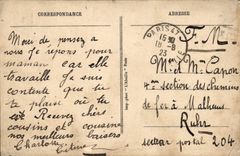 CORRESPONDANCE
ADRESSE
Merci de penser a
nous je repons pour
maman car elle
travaille je suis
contente que tu
te plaise ou tu
est Recevez chers
cousins et cousine
nos meilleurs baisers
Charlotte
PARIS
16 30
18 - 8
23
F. M.
M. et Me Capon
section des chemins
de fer à Malheim
Ruhr
secteur postal 204